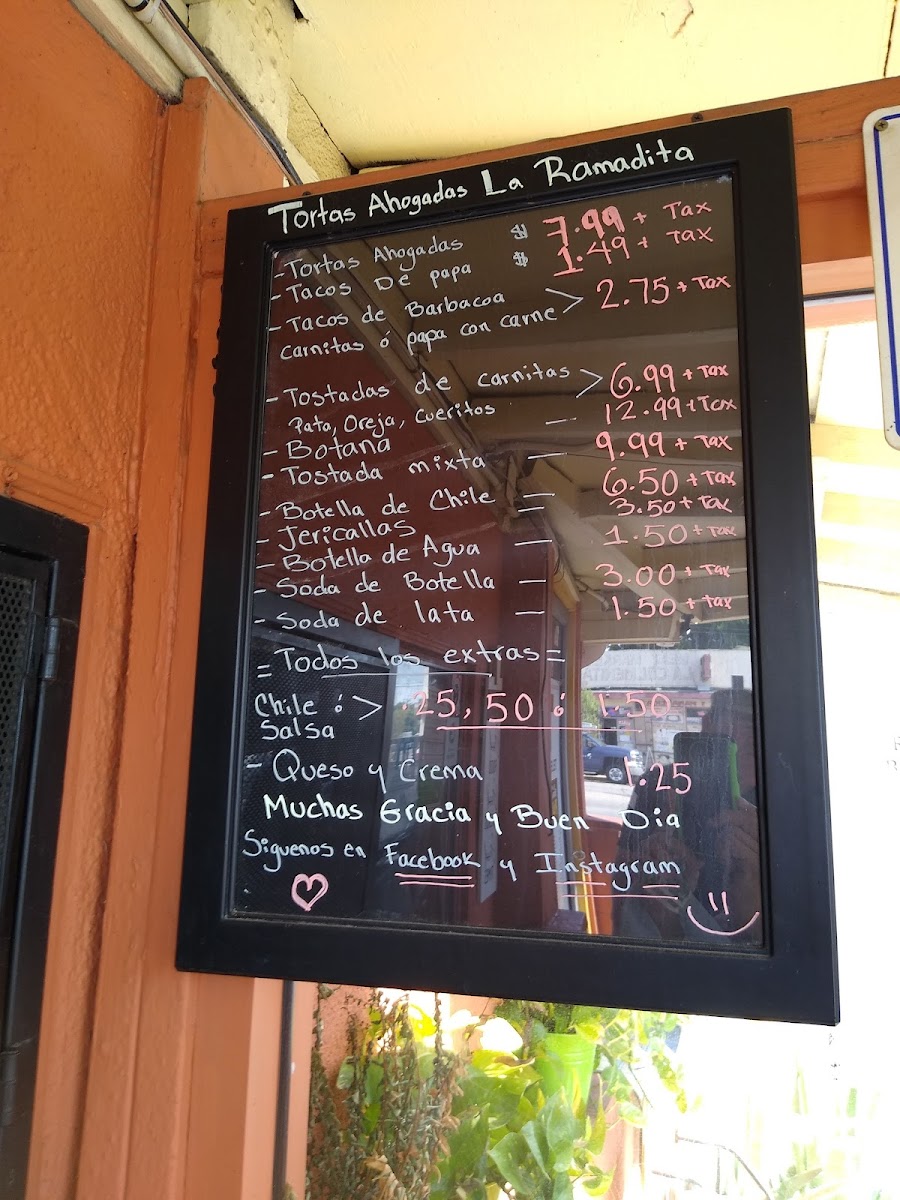 Tortas Ahogadas La Ramadita
- Tortas Ahogadas $ 7.99 + Tax
- Tacos De papa $ 1.49 + Tax
- Tacos de Barbacoa > 2.75 + Tax
Carnitas ó papa con carne
- Tostadas de carnitas > 6.99 + Tax
Pata, Oreja, Cueritos
- Botana — 12.99 + Tax
- Tostada mixta — 9.99 + Tax
- Botella de Chile — 6.50 + Tax
- Jericallas — 3.50 + Tax
- Botella de Agua — 1.50 + Tax
- Soda de Botella — 3.00 + Tax
- Soda de lata — 1.50 + Tax
= Todos los extras =
Chile ó > .25, 50 ó 1.50
Salsa
- Queso y Crema 1.25
Muchas Gracia y Buen Dia
Siguenos en Facebook y Instagram